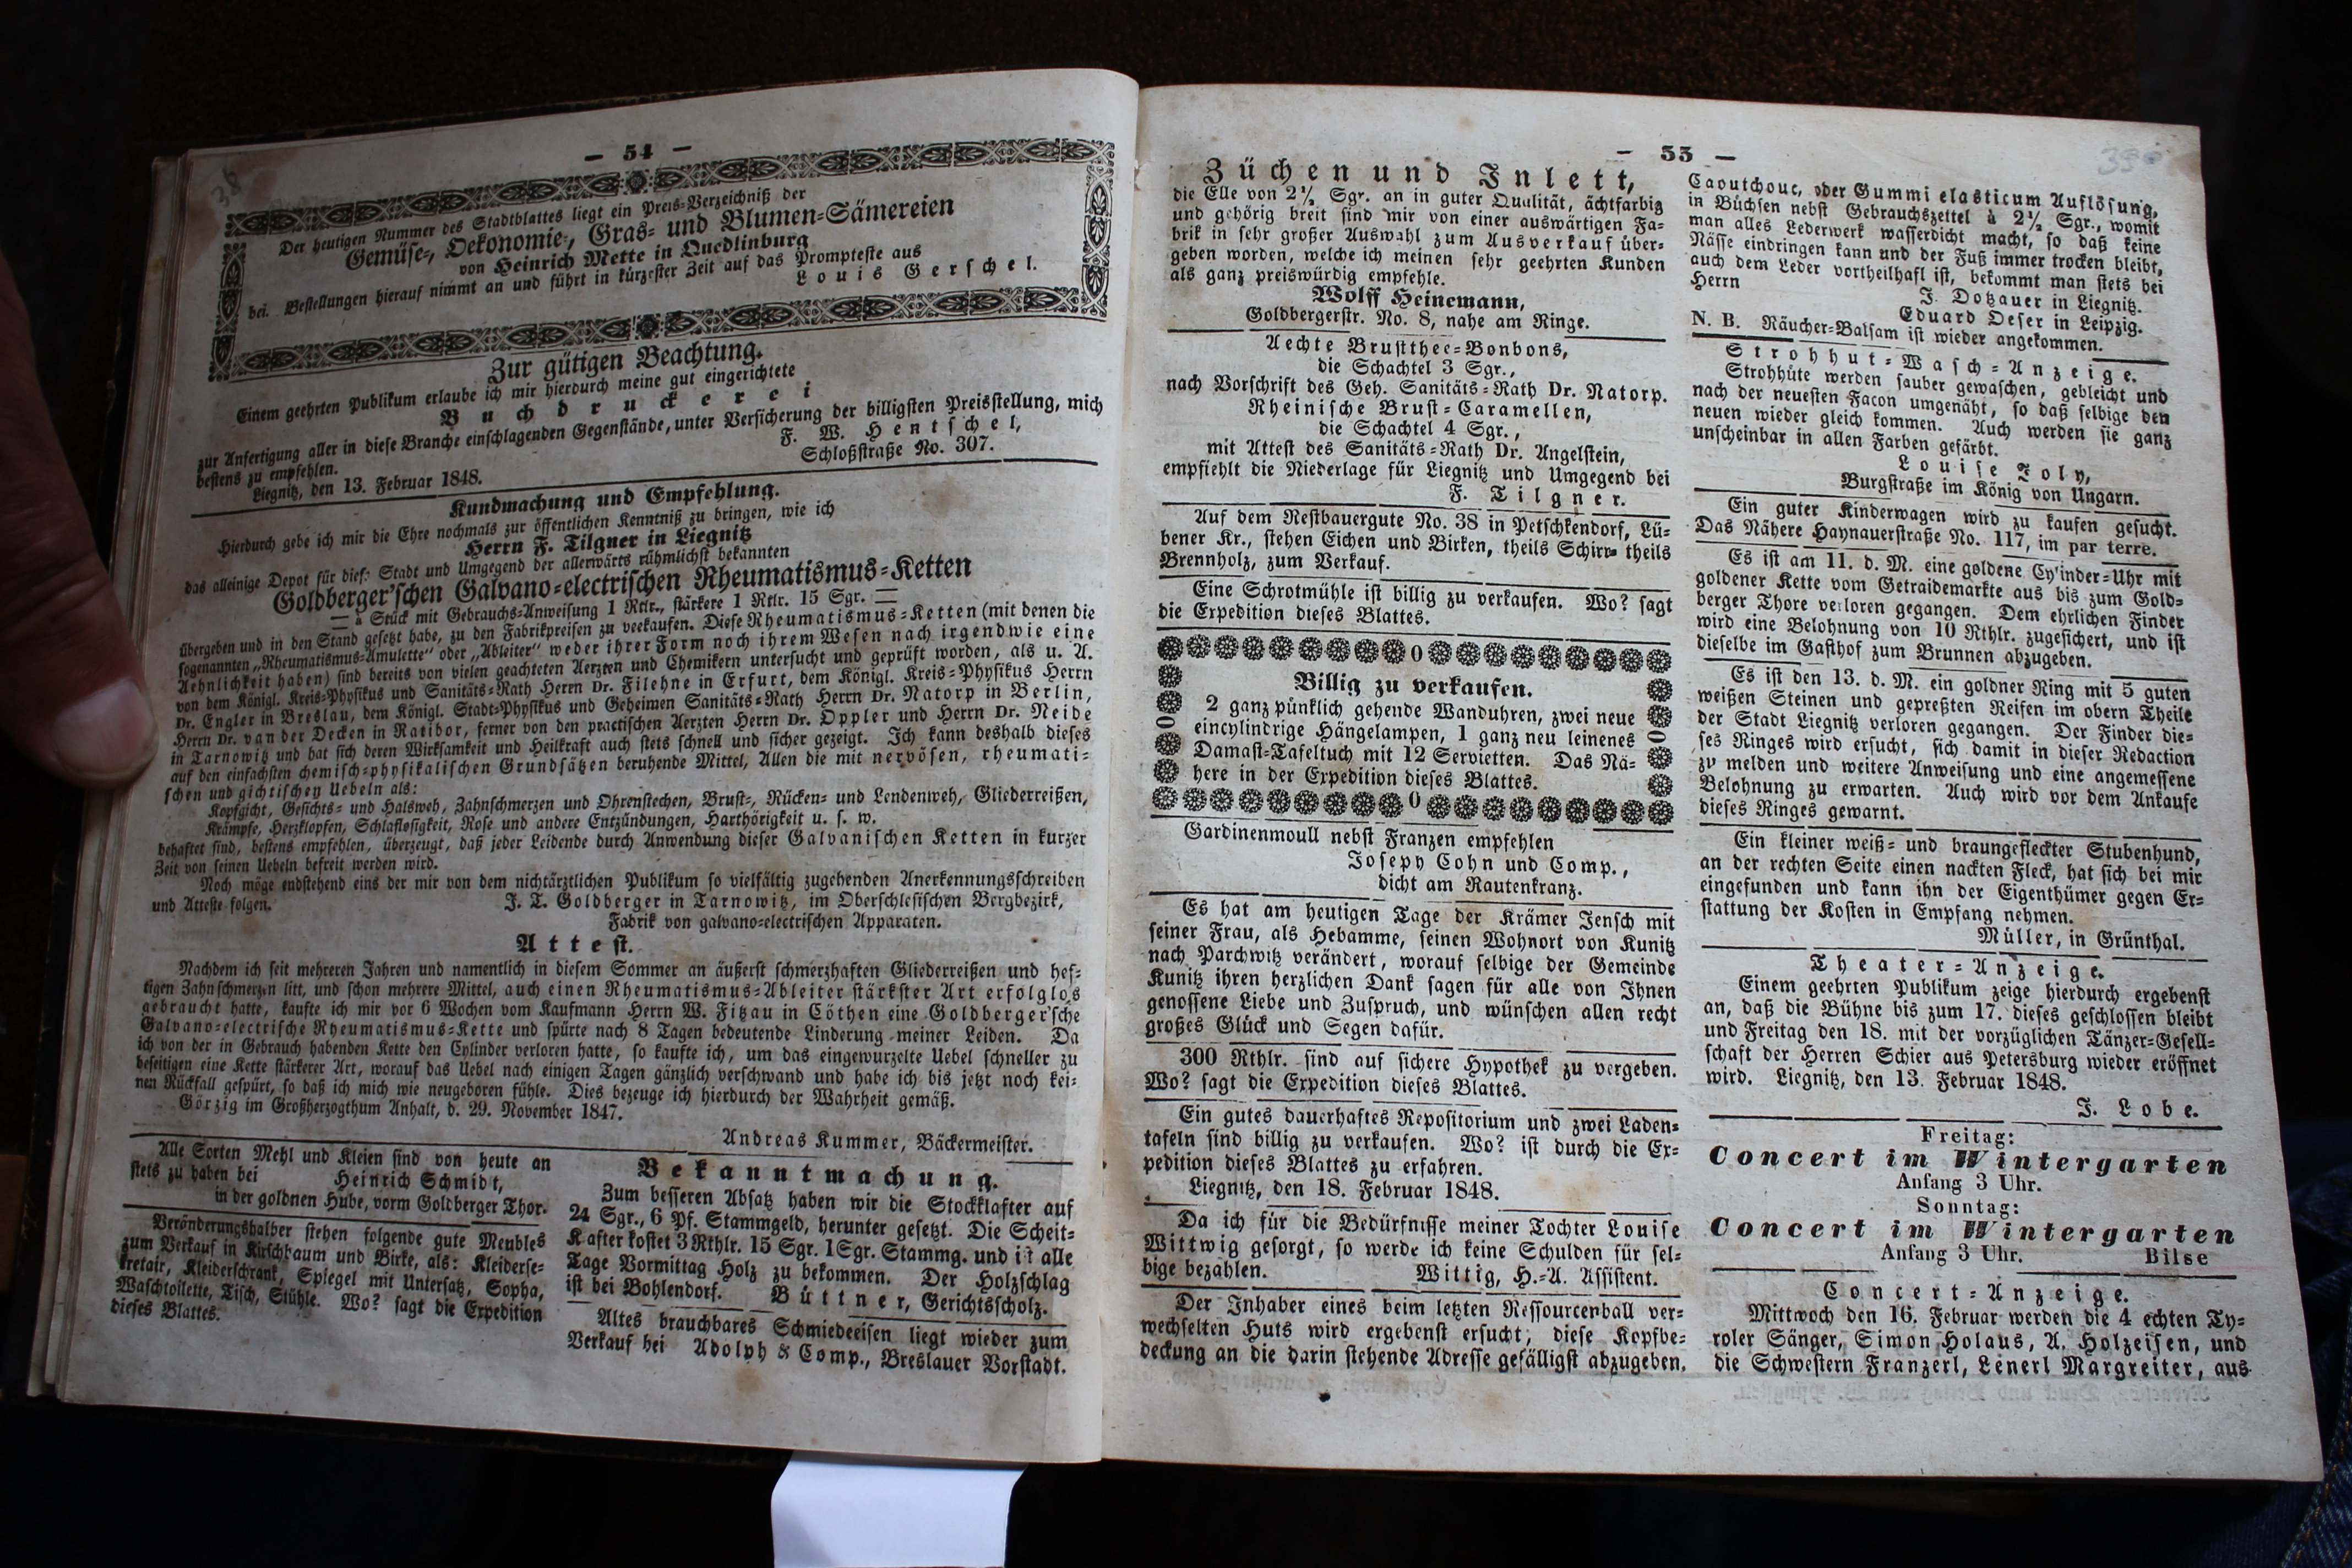 — 54 —
Der heutigen Nummer des Stadtblattes liegt ein Preis-Verzeichniß der
Gemüse-, Oekonomie-, Gras- und Blumen-Sämereien
von Heinrich Mette in Quedlinburg
bei. Bestellungen hierauf nimmt an und führt in kürzester Zeit auf das Prompteste aus
Louis Gerschel.
Zur gütigen Beachtung.
Einem geehrten Publikum erlaube ich mir hierdurch meine gut eingerichtete
Buchdruckerei
zur Anfertigung aller in diese Branche einschlagenden Gegenstände, unter Versicherung der billigsten Preisstellung, mich
bestens zu empfehlen.
F. W. Hentschel,
Liegnitz, den 13. Februar 1848.
Schloßstraße No. 307.
Kundmachung und Empfehlung.
Hierdurch gebe ich mir die Ehre nochmals zur öffentlichen Kenntniß zu bringen, wie ich
Herrn F. Tilgner in Liegnitz
das alleinige Depot für diese Stadt und Umgegend der allerwärts rühmlichst bekannten
Goldberger'schen Galvano-electrischen Rheumatismus-Ketten
à Stück mit Gebrauchs-Anweisung 1 Rtlr., stärkere 1 Rtlr. 15 Sgr.
übergeben und in den Stand gesetzt habe, zu den Fabrikpreisen zu veekaufen. Diese Rheumatismus-Ketten (mit denen die
sogenannten „Rheumatismus-Amulette“ oder „Ableiter“ weder ihrer Form noch ihrem Wesen nach irgendwie eine
Aehnlichkeit haben) sind bereits von vielen geachteten Aerzten und Chemikern untersucht und geprüft worden, als u. A.
von dem Königl. Kreis-Physikus und Sanitäts-Rath Herrn Dr. Filehne in Erfurt, dem Königl. Kreis-Physikus Herrn
Dr. Engler in Breslau, dem Königl. Stadt-Physikus und Geheimen Sanitäts-Rath Herrn Dr. Natorp in Berlin,
Herrn Dr. van der Decken in Ratibor, ferner von den practischen Aerzten Herrn Dr. Oppler und Herrn Dr. Neide
in Tarnowitz und hat sich deren Wirksamkeit und Heilkraft auch stets schnell und sicher gezeigt. Ich kann deshalb dieses
auf den einfachsten chemisch-physikalischen Grundsätzen beruhende Mittel, Allen die mit nervösen, rheumati-
schen und gichtischen Uebeln als:
Kopfgicht, Gesichts- und Halsweh, Zahnschmerzen und Ohrenstechen, Brust-, Rücken- und Lendenweh, Gliederreißen,
Krämpfe, Herzklopfen, Schlaflosigkeit, Rose und andere Entzündungen, Harthörigkeit u. s. w.
behaftet sind, bestens empfehlen, überzeugt, daß jeder Leidende durch Anwendung dieser Galvanischen Ketten in kurzer
Zeit von seinen Uebeln befreit werden wird.
Noch möge endstehend eins der mir von dem nichtärztlichen Publikum so vielfältig zugehenden Anerkennungsschreiben
und Atteste folgen.
J. T. Goldberger in Tarnowitz, im Oberschlesischen Bergbezirk,
Fabrik von galvano-electrischen Apparaten.
Attest.
Nachdem ich seit mehreren Jahren und namentlich in diesem Sommer an äußerst schmerzhaften Gliederreißen und hef-
tigen Zahnschmerzen litt, und schon mehrere Mittel, auch einen Rheumatismus-Ableiter stärkster Art erfolglos
gebraucht hatte, kaufte ich mir vor 6 Wochen vom Kaufmann Herrn W. Fitzau in Cöthen eine Goldberger'sche
Galvano-electrische Rheumatismus-Kette und spürte nach 8 Tagen bedeutende Linderung meiner Leiden. Da
ich von der in Gebrauch habenden Kette den Cylinder verloren hatte, so kaufte ich, um das eingewurzelte Uebel schneller zu
beseitigen eine Kette stärkerer Art, worauf das Uebel nach einigen Tagen gänzlich verschwand und habe ich bis jetzt noch kei-
nen Rückfall gespürt, so daß ich mich wie neugeboren fühle. Dies bezeuge ich hierdurch der Wahrheit gemäß.
Görzig im Großherzogthum Anhalt, d. 29. November 1847.
Andreas Kummer, Bäckermeister.
Alle Sorten Mehl und Kleien sind von heute an
stets zu haben bei
Heinrich Schmidt,
in der goldnen Hube, vorm Goldberger Thor.
Veränderungshalber stehen folgende gute Meubles
zum Verkauf in Kirschbaum und Birke, als: Kleiderse-
kretair, Kleiderschrank, Spiegel mit Untersatz, Sopha,
Waschtoilette, Tisch, Stühle. Wo? sagt die Expedition
dieses Blattes.
Bekanntmachung.
Zum besseren Absatz haben wir die Stockklafter auf
24 Sgr., 6 Pf. Stammgeld, herunter gesetzt. Die Scheit-
Klafter kostet 3 Rthlr. 15 Sgr. 1 Sgr. Stammg. und ist alle
Tage Vormittag Holz zu bekommen. Der Holzschlag
ist bei Bohlendorf. Büttner, Gerichtsscholz.
Altes brauchbares Schmiedeeisen liegt wieder zum
Verkauf bei Adolph & Comp., Breslauer Vorstadt.
— 55 —
Züchen und Inlett,
die Elle von 2½ Sgr. an in guter Qualität, ächtfarbig
und gehörig breit sind mir von einer auswärtigen Fa-
brik in sehr großer Auswahl zum Ausverkauf über-
geben worden, welche ich meinen sehr geehrten Kunden
als ganz preiswürdig empfehle.
Wolff Heinemann,
Goldbergerstr. No. 8, nahe am Ringe.
Aechte Brustthee-Bonbons,
die Schachtel 3 Sgr.,
nach Vorschrift des Geh. Sanitäts-Rath Dr. Natorp.
Rheinische Brust-Caramellen,
die Schachtel 4 Sgr.,
mit Attest des Sanitäts-Rath Dr. Angelstein,
empfiehlt die Niederlage für Liegnitz und Umgegend bei
F. Tilgner.
Auf dem Restbauergute No. 38 in Petschkendorf, Lü-
bener Kr., stehen Eichen und Birken, theils Schirr- theils
Brennholz, zum Verkauf.
Eine Schrotmühle ist billig zu verkaufen. Wo? sagt
die Expedition dieses Blattes.
Billig zu verkaufen.
2 ganz pünklich gehende Wanduhren, zwei neue
eincylindrige Hängelampen, 1 ganz neu leinenes
Damast-Tafeltuch mit 12 Servietten. Das Nä-
here in der Expedition dieses Blattes.
Gardinenmoull nebst Franzen empfehlen
Joseph Cohn und Comp.,
dicht am Rautenkranz.
Es hat am heutigen Tage der Krämer Jensch mit
seiner Frau, als Hebamme, seinen Wohnort von Kunitz
nach Parchwitz verändert, worauf selbige der Gemeinde
Kunitz ihren herzlichen Dank sagen für alle von Ihnen
genossene Liebe und Zuspruch, und wünschen allen recht
großes Glück und Segen dafür.
300 Rthlr. sind auf sichere Hypothek zu vergeben.
Wo? sagt die Expedition dieses Blattes.
Ein gutes dauerhaftes Repositorium und zwei Laden-
tafeln sind billig zu verkaufen. Wo? ist durch die Ex-
pedition dieses Blattes zu erfahren.
Liegnitz, den 18. Februar 1848.
Da ich für die Bedürfnisse meiner Tochter Louise
Wittwig gesorgt, so werde ich keine Schulden für sel-
bige bezahlen.
Wittig, H.-A. Assistent.
Der Inhaber eines beim letzten Ressourcenball ver-
wechselten Huts wird ergebenst ersucht, diese Kopfbe-
deckung an die darin stehende Adresse gefälligst abzugeben.
Caoutchouc, oder Gummi elasticum Auflösung,
in Büchsen nebst Gebrauchszettel à 2½ Sgr., womit
man alles Lederwerk wasserdicht macht, so daß keine
Nässe eindringen kann und der Fuß immer trocken bleibt,
auch dem Leder vortheilhaft ist, bekommt man stets bei
Herrn
J. Dotzauer in Liegnitz.
Eduard Oeser in Leipzig.
N. B. Räucher-Balsam ist wieder angekommen.
Strohhut-Wasch-Anzeige.
Strohhüte werden sauber gewaschen, gebleicht und
nach der neuesten Facon umgenäht, so daß selbige den
neuen wieder gleich kommen. Auch werden sie ganz
unscheinbar in allen Farben gefärbt.
Louise Joly,
Burgstraße im König von Ungarn.
Ein guter Kinderwagen wird zu kaufen gesucht.
Das Nähere Haynauerstraße No. 117, im par terre.
Es ist am 11. d. M. eine goldene Cylinder-Uhr mit
goldener Kette vom Getraidemarkte aus bis zum Gold-
berger Thore verloren gegangen. Dem ehrlichen Finder
wird eine Belohnung von 10 Rthlr. zugesichert, und ist
dieselbe im Gasthof zum Brunnen abzugeben.
Es ist den 13. d. M. ein goldner Ring mit 5 guten
weißen Steinen und gepreßten Reifen im obern Theile
der Stadt Liegnitz verloren gegangen. Der Finder die-
ses Ringes wird ersucht, sich damit in dieser Redaction
zu melden und weitere Anweisung und eine angemessene
Belohnung zu erwarten. Auch wird vor dem Ankaufe
dieses Ringes gewarnt.
Ein kleiner weiß- und braungefleckter Stubenhund,
an der rechten Seite einen nackten Fleck, hat sich bei mir
eingefunden und kann ihn der Eigenthümer gegen Er-
stattung der Kosten in Empfang nehmen.
Müller, in Grünthal.
Theater-Anzeige.
Einem geehrten Publikum zeige hierdurch ergebenst
an, daß die Bühne bis zum 17. dieses geschlossen bleibt
und Freitag den 18. mit der vorzüglichen Tänzer-Gesell-
schaft der Herren Schier aus Petersburg wieder eröffnet
wird. Liegnitz, den 13. Februar 1848.
J. Lobe.
Freitag:
Concert im Wintergarten
Anfang 3 Uhr.
Sonntag:
Concert im Wintergarten
Anfang 3 Uhr. Bilse
Concert-Anzeige.
Mittwoch den 16. Februar werden die 4 echten Ty-
roler Sänger, Simon Holaus, A. Holzeisen, und
die Schwestern Franzerl, Lenerl Margreiter, aus